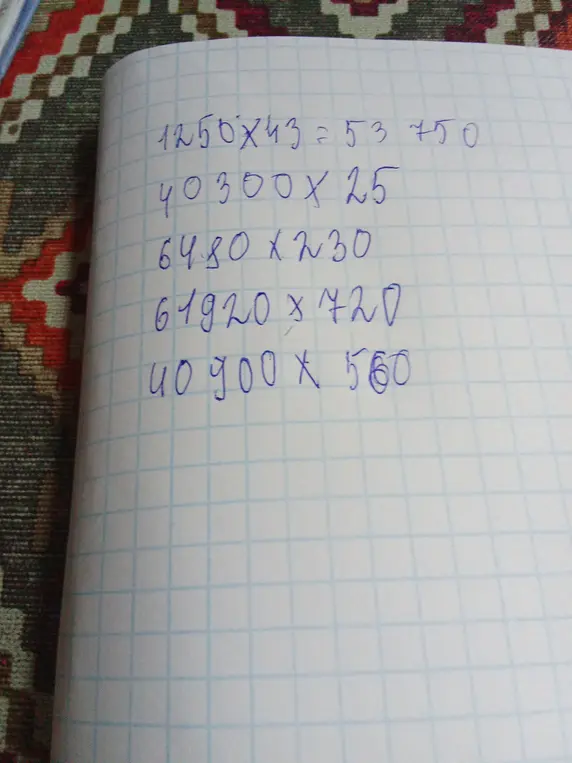 1250x43 = 53 750
40300x 25
6480 x 230
61920 x 720
40900 x 560